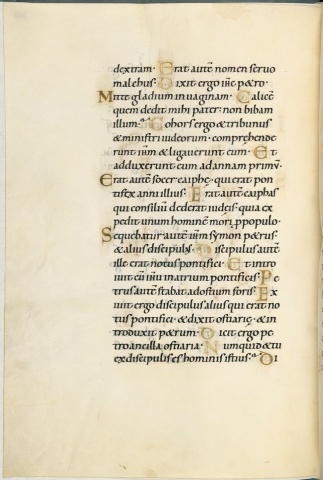 dextram · Erat autē nomen servo
malchus · Dixit ergo ihc petro ·
Mitte gladium in vaginam · Calicē
quem dedit mihi pater · non bibam
illum · Cohors ergo & tribunus
& ministri iudeorum · comprehende
runt ihm & ligaverunt eum · Et
adduxerunt eum ad annam primū ·
Erat autē socer caiphę · qui erat pon
tifex anni illius · Erat autē caiphas
qui consiliū dederat iudęis · quia ex
pedit unum hominē mori p populo ·
Sequebatur autē ihm symon petrus ·
& alius discipulus · Discipulus autē
ille erat notus pontifici · Et intro
ivit cū ihu in atrium pontificis · Pe
trus autē stabat ad ostium foris · Ex
ivit ergo discipulus alius qui erat no
tus pontifici · & dixit ostiarię · & in
troduxit petrum · Dicit ergo pe
tro ancilla ostiaria · Numquid & tu
ex discipulis es hominis istius · Di